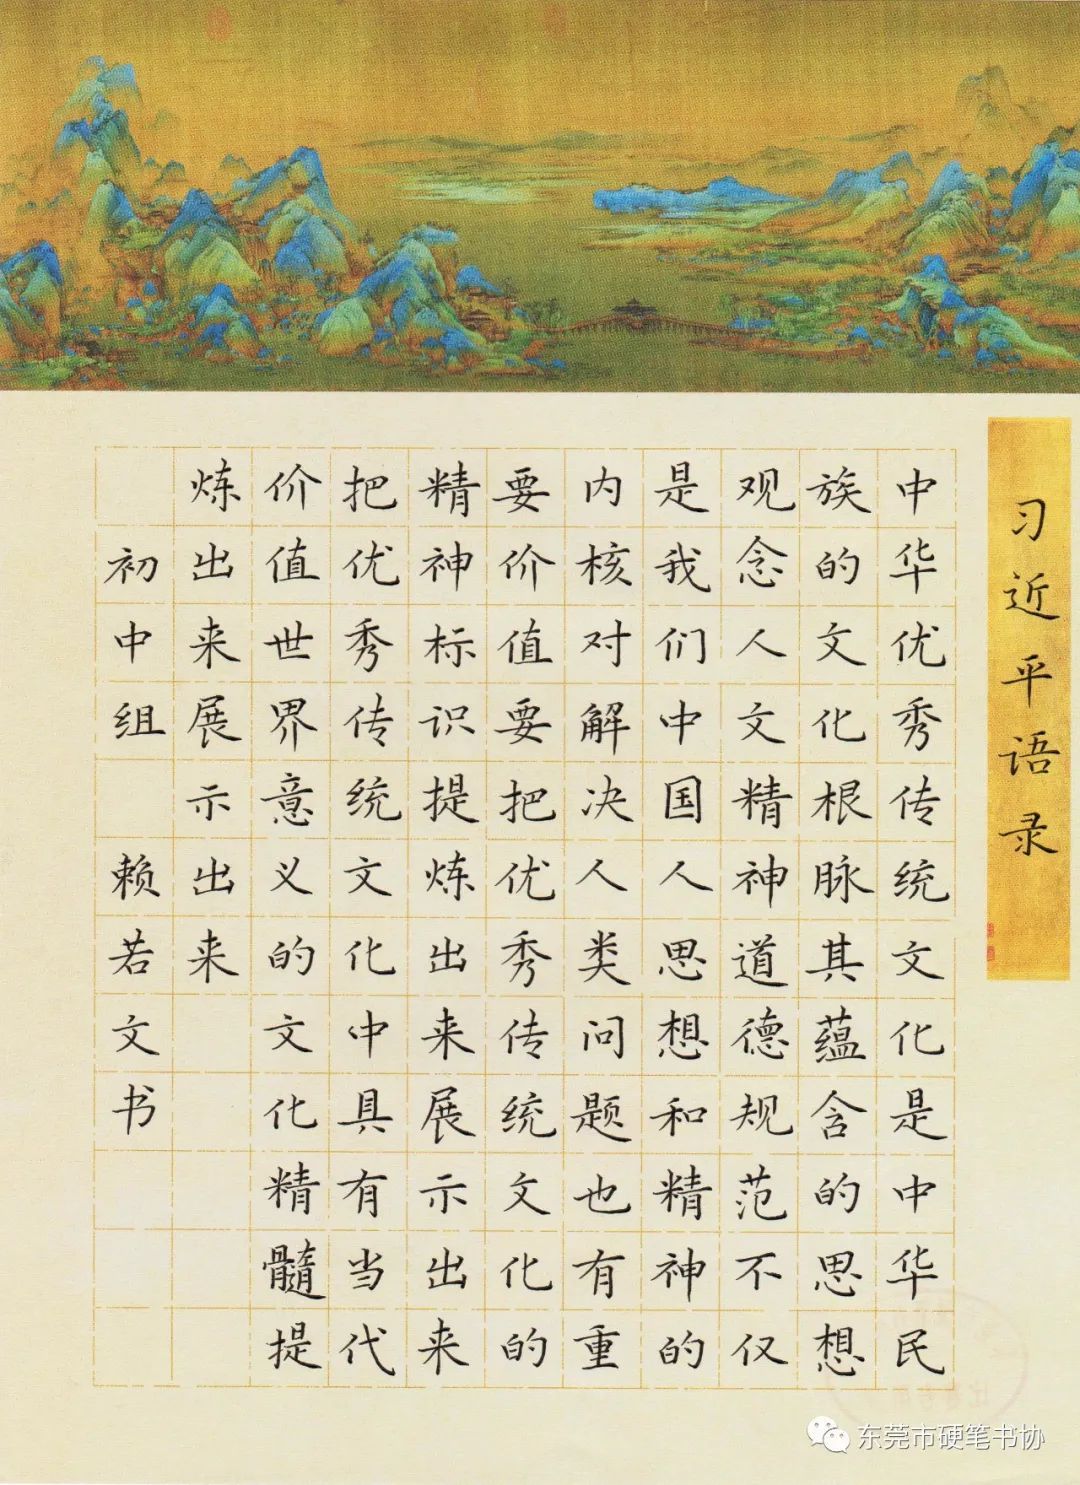 习近平语录
中华优秀传统文化是中华民
族的文化根脉其蕴含的思想
观念人文精神道德规范不仅
是我们中国人思想和精神的
内核对解决人类问题也有重
要价值要把优秀传统文化的
精神标识提炼出来展示出来
把优秀传统文化中具有当代
价值世界意义的文化精髓提
炼出来展示出来
初中组 赖若文书
东莞市硬笔书协